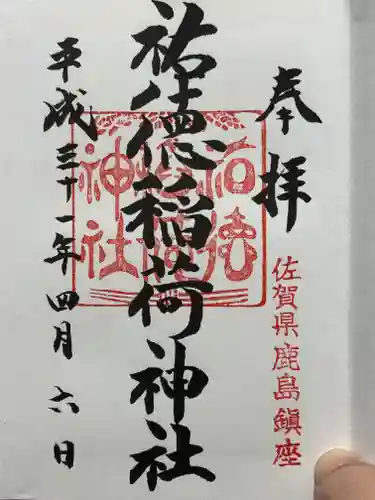 奉拝
佐賀県鹿島鎮座
祐徳稲荷神社
平成三十一年四月六日